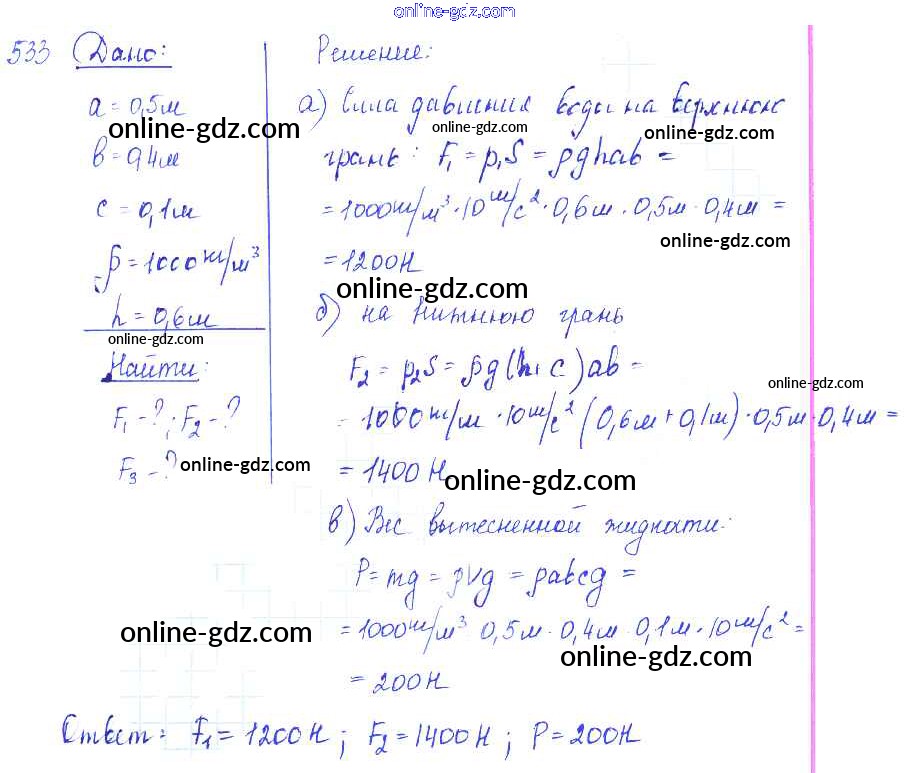 online-gdz.com
533 Дано:
a = 0,5м
online-gdz.com
b = 0,4м
c = 0,1м
ρ = 1000кг/м³
h = 0,6м
online-gdz.com
Найти:
F₁ - ? ; F₂ - ?
F₃ - ? online-gdz.com
Решение:
а) Сила давления воды на верхнюю
online-gdz.com online-gdz.com
грань: F₁ = p₁S = ρghab =
= 1000кг/м³ · 10 м/с² · 0,6м · 0,5м · 0,4м =
online-gdz.com
= 1200Н
online-gdz.com
б) на нижнюю грань
F₂ = p₂S = ρg(h+c)ab =
online-gdz.com
= 1000кг/м · 10м/с² (0,6м + 0,1м) · 0,5м · 0,4м =
= 1400 Н
online-gdz.com
в) Вес вытесненной жидкости:
P = mg = ρVg = ρabcg =
= 1000кг/м³ 0,5м · 0,4м · 0,1м · 10м/с² =
online-gdz.com online-gdz.com
= 200Н
Ответ: F₁ = 1200Н ; F₂ = 1400Н ; P = 200Н